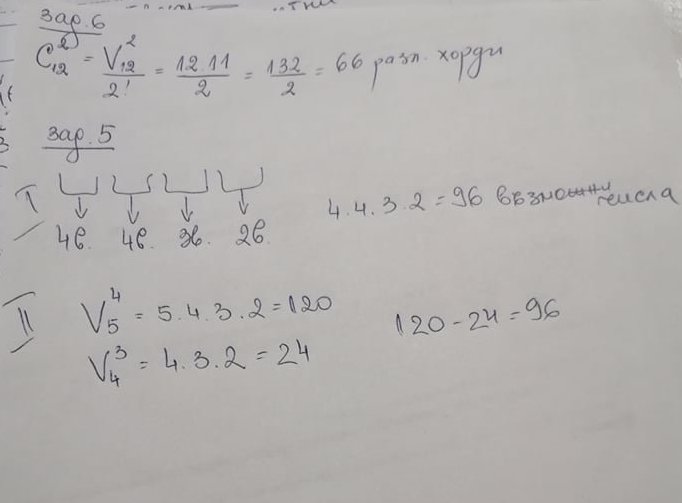 зад. 6
C₁₂² = V₁₂²/2! = 12.11/2 = 132/2 = 66 разл. хорди
зад. 5
I
4в. 4в. 3в. 2в.
4.4.3.2 = 96 възможни числа
II
V₅⁴ = 5.4.3.2 = 120
120 - 24 = 96
V₄³ = 4.3.2 = 24